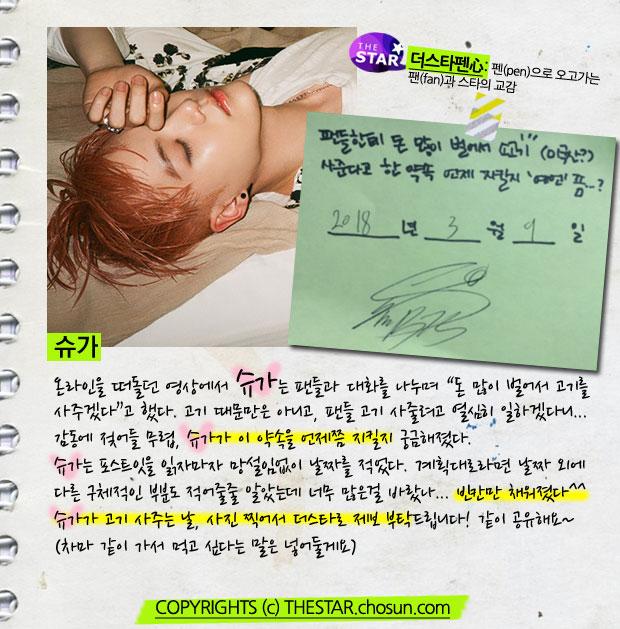 THE STAR
더스타펜心: 펜(pen)으로 오고가는
팬(fan)과 스타의 교감
팬들한테 돈 많이 벌어서 고기 (이국산?)
사준다고 한 약속 언제 지킬지
2018 년 3 월 9 일
슈가
온라인을 떠돌던 영상에서 슈가는 팬들과 대화를 나누며 “돈 많이 벌어서 고기를
사주겠다”고 했다. 고기 때문만은 아니고, 팬들 고기 사줄려고 열심히 일하겠다니...
감동에 젖어들 무렵, 슈가가 이 약속을 언제쯤 지킬지 궁금해졌다.
슈가는 포스트잇을 읽자마자 망설임없이 날짜를 적었다. 계획대로라면 날짜 외에
다른 구체적인 부분도 적어줄줄 알았는데 너무 많은걸 바랐나... 빈칸만 채워졌다^^
슈가가 고기 사주는 날, 사진 찍어서 더스타로 제보 부탁드립니다! 같이 공유해요~
(차마 같이 가서 먹고 싶다는 말은 넣어둘게요)
COPYRIGHTS (c) THESTAR.chosun.com